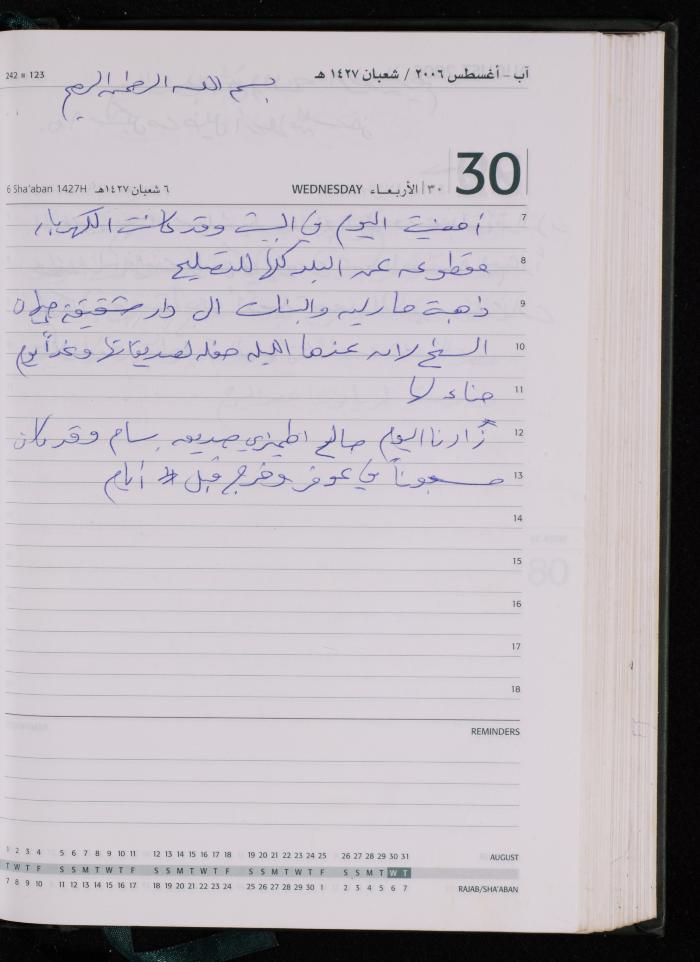 242 = 123
آب - أغسطس ٢٠٠٦ / شعبان ١٤٢٧ هـ
بسم الله الرحمن الرحيم
30
٣٠ الأربعاء WEDNESDAY
٦ شعبان ١٤٢٧هـ 6 Sha'aban 1427H
7 أمضيت اليوم في البيت وقد كانت الكهرباء
8 مقطوعه عن البلد كلها للتصليح
9 ذهبت والبنات الى دار شقيقة
10 الشيخ لانه عندها الليله حفله لصديقاتها وغداً يوم
11 حناء لها
12 زارنا اليوم صالح صديق بسام وقد كان
13 مسجوناً في عوفر وخرج قبل أيام
14
15
16
17
18
REMINDERS
1 2 3 4 5 6 7 8 9 10 11 12 13 14 15 16 17 18 19 20 21 22 23 24 25 26 27 28 29 30 31 AUGUST
T W T F S S M T W T F S S M T W T F S S M T W T F S S M T W T
7 8 9 10 11 12 13 14 15 16 17 18 19 20 21 22 23 24 25 26 27 28 29 30 1 2 3 4 5 6 7 RAJAB/SHA'ABAN